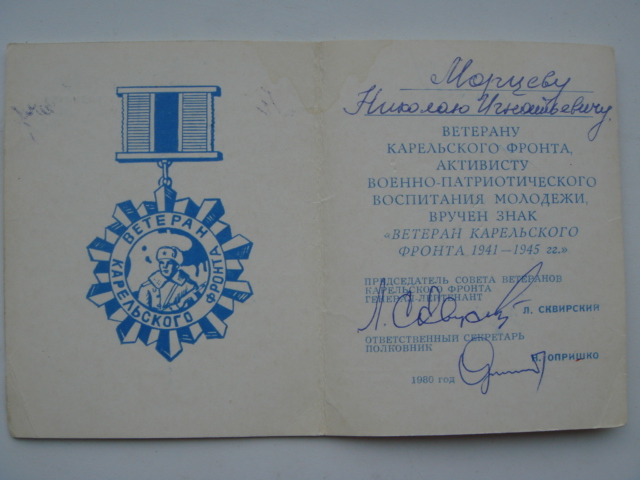 ВЕТЕРАН
КАРЕЛЬСКОГО ФРОНТА
Морцеву
Николаю Игнатьевичу
ВЕТЕРАНУ
КАРЕЛЬСКОГО ФРОНТА,
АКТИВИСТУ
ВОЕННО-ПАТРИОТИЧЕСКОГО
ВОСПИТАНИЯ МОЛОДЕЖИ,
ВРУЧЕН ЗНАК
«ВЕТЕРАН КАРЕЛЬСКОГО
ФРОНТА 1941—1945 гг.»
ПРЕДСЕДАТЕЛЬ СОВЕТА ВЕТЕРАНОВ
КАРЕЛЬСКОГО ФРОНТА
ГЕНЕРАЛ-ЛЕЙТЕНАНТ
Л. СКВИРСКИЙ
ОТВЕТСТВЕННЫЙ СЕКРЕТАРЬ
ПОЛКОВНИК
ОПРИШКО
1980 год